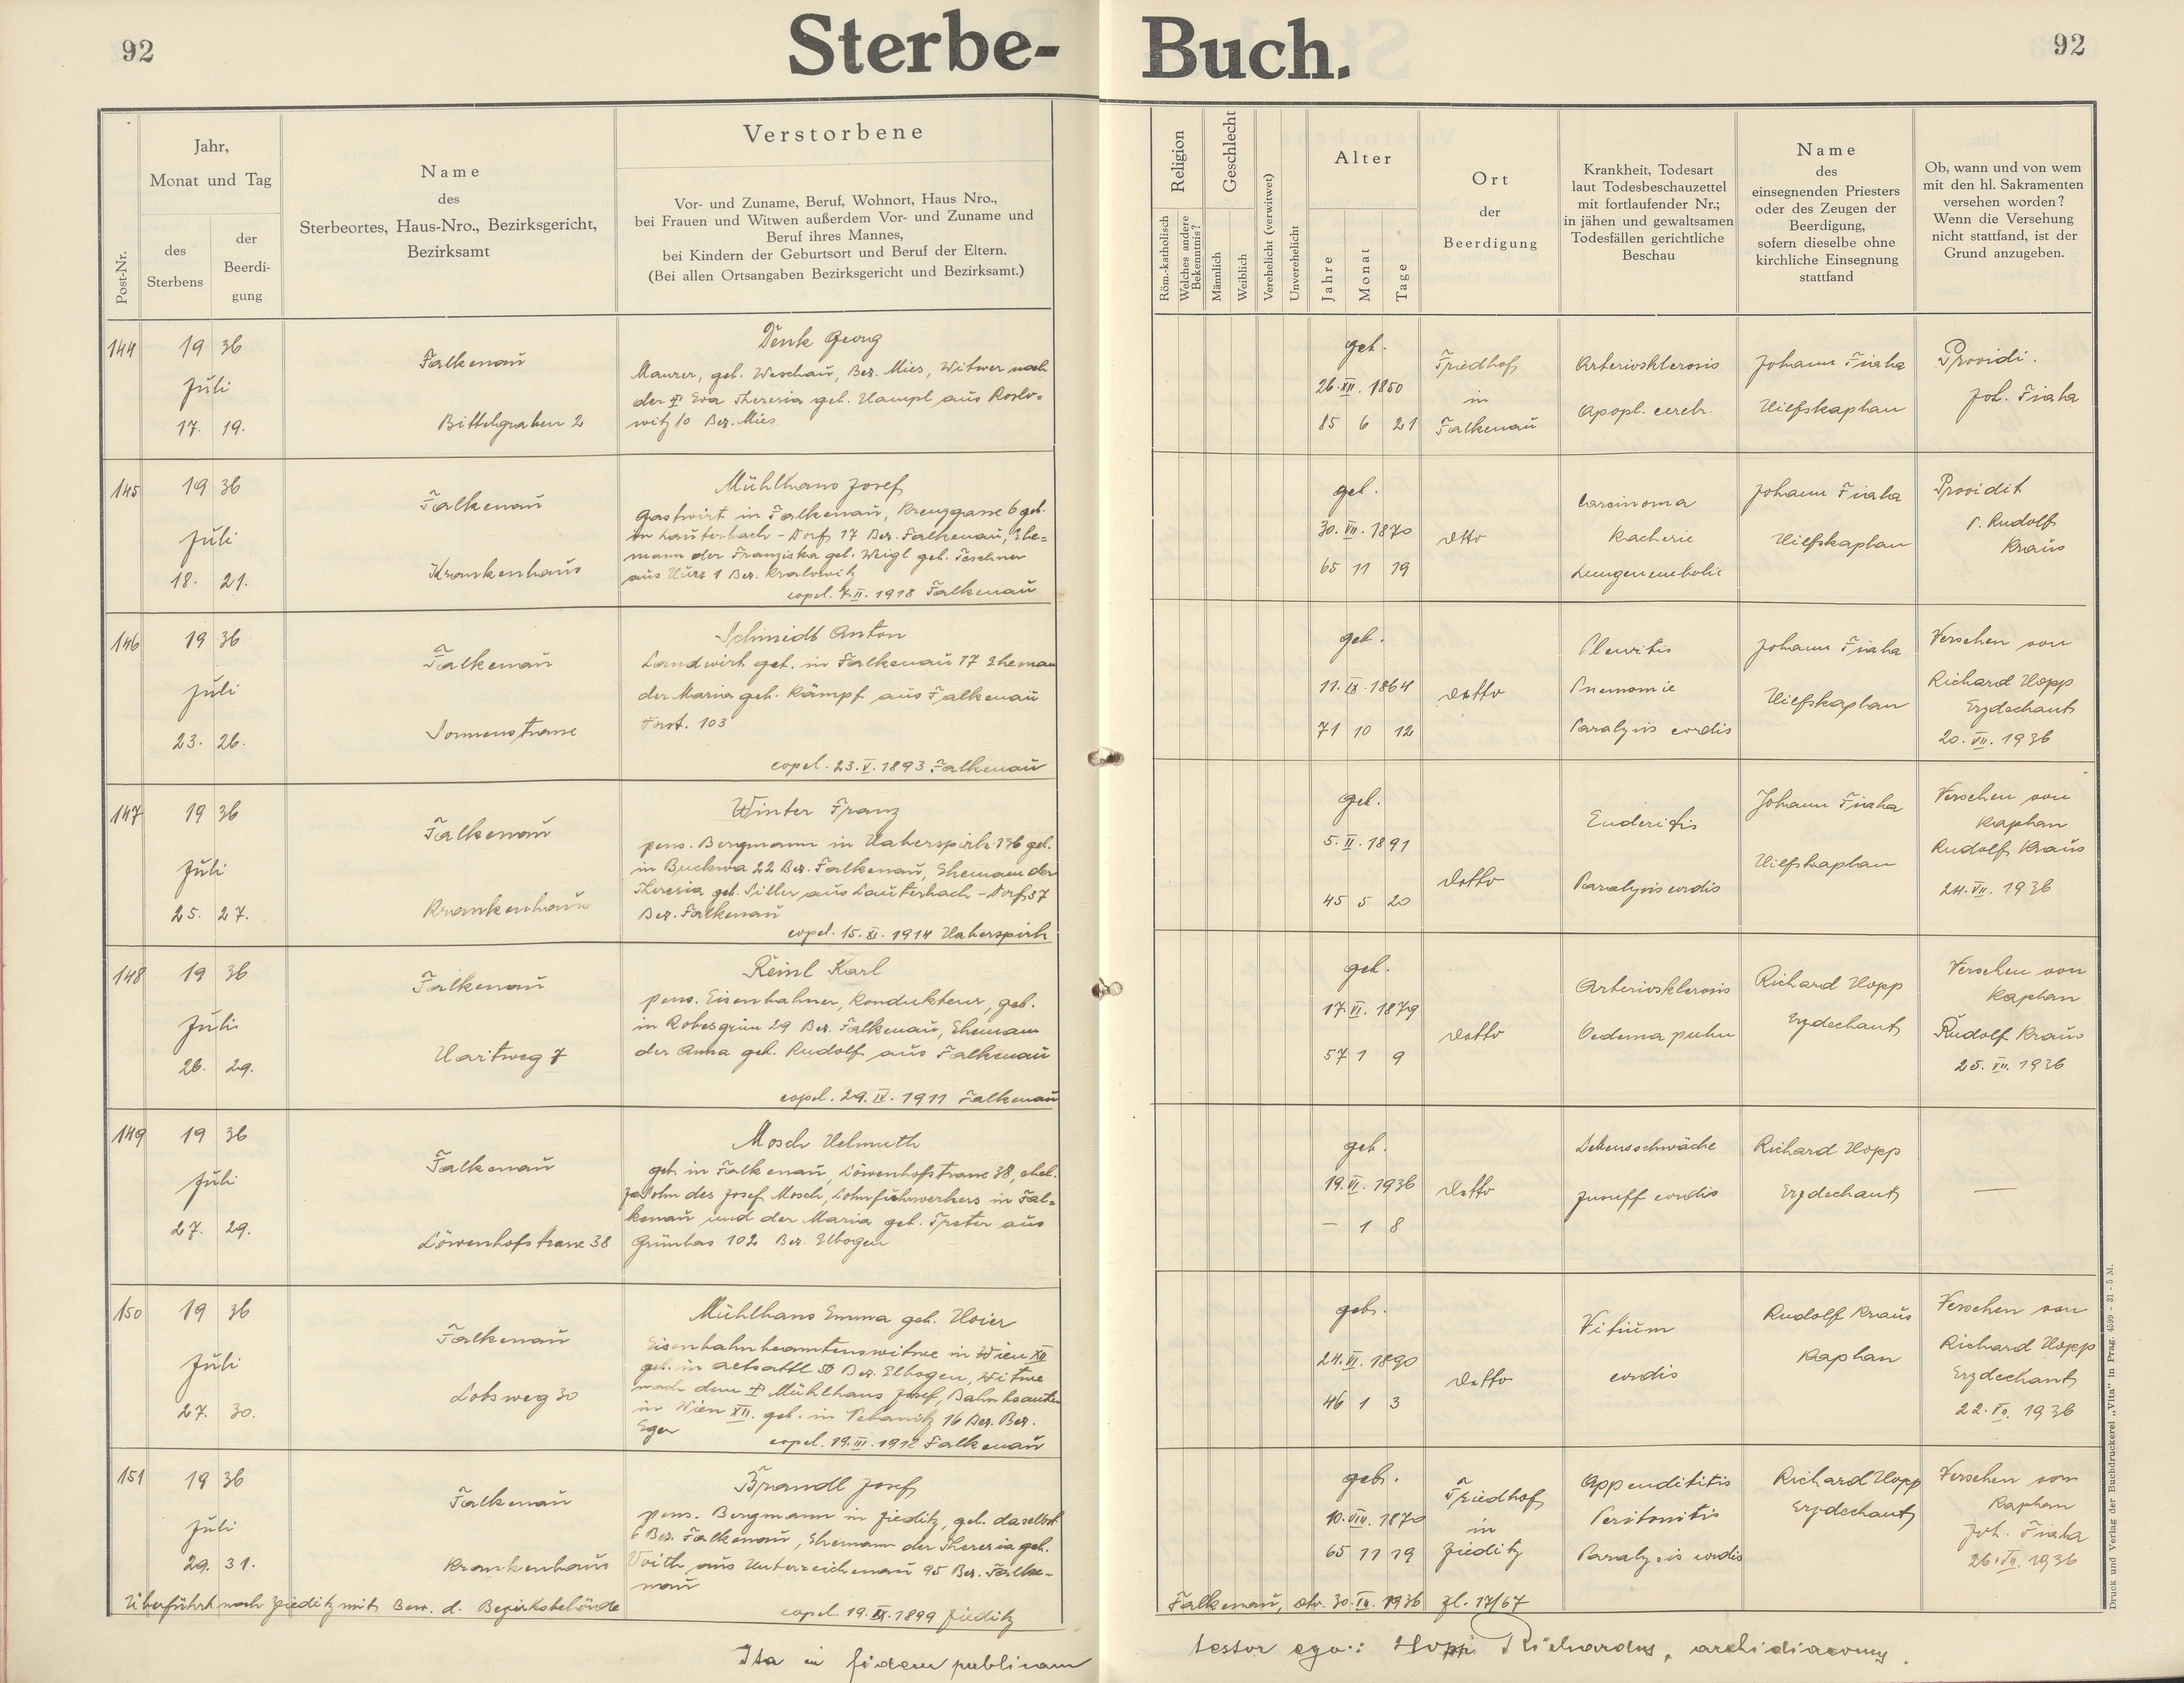 92
Sterbe-
Buch.
92
Post-Nr.
Jahr,
Monat und Tag
des
Sterbens
der
Beerdi-
gung
Name
des
Sterbeortes, Haus-Nro., Bezirksgericht,
Bezirksamt
Verstorbene
Vor- und Zuname, Beruf, Wohnort, Haus Nro.,
bei Frauen und Witwen außerdem Vor- und Zuname und
Beruf ihres Mannes,
bei Kindern der Geburtsort und Beruf der Eltern.
(Bei allen Ortsangaben Bezirksgericht und Bezirksamt.)
Religion
Röm.-katholisch
Welches andere
Bekenntnis?
Geschlecht
Männlich
Weiblich
Verehelicht (verwitwet)
Unverehelicht
Alter
Jahre
Monat
Tage
Ort
der
Beerdigung
Krankheit, Todesart
laut Todesbeschauzettel
mit fortlaufender Nr.;
in jähen und gewaltsamen
Todesfällen gerichtliche
Beschau
Name
des
einsegnenden Priesters
oder des Zeugen der
Beerdigung,
sofern dieselbe ohne
kirchliche Einsegnung
stattfand
Ob, wann und von wem
mit den hl. Sakramenten
versehen worden?
Wenn die Versehung
nicht stattfand, ist der
Grund anzugeben.
144
19 36
Juli
17. 19.
Falkenau
Bittelgraben 2
Denk Georg
Maurer, geb. Weschau, Bez. Mies, Witwer nach
der † Eva Theresia geb. Hampl aus
witz 10 Bez. Mies
geb.
26. XII. 1850
85 6 21
Friedhof
in
Falkenau
Arteriosklerosis
Apopl. cerebr.
Johann Fiaha
Hilfskaplan
Providi.
Joh. Fiaha
145
19 36
Juli
18. 21.
Falkenau
Krankenhaus
Mühlhans Josef
Gastwirt in Falkenau, Kreuzgasse 6 geb.
in Lauterbach - Dorf 17 Bez. Falkenau, Ehe=
mann der Franziska geb. Weigl geb. Teschner
aus 1 Bez. Kralowitz
copul. 7. II. 1918 Falkenau
geb.
30. VII. 1870
65 11 19
dtto
Carcinoma
Kachexie
Lungenembolie
Johann Fiaha
Hilfskaplan
Providit
P. Rudolf
Kraus
146
19 36
Juli
23. 26.
Falkenau
Sonnenstrasse
Schmidt Anton
Landwirt geb. in Falkenau 17 Eheman
der Maria geb. Kämpf aus Falkenau
Vorst. 103
copul. 23. V. 1893 Falkenau
geb.
11. IX. 1864
71 10 12
detto
Pleuritis
Pneumonie
Paralysis cordis
Johann Fiaha
Hilfskaplan
Versehen von
Richard Hopp
Erzdechant
20. VII. 1936
147
19 36
Juli
25. 27.
Falkenau
Krankenhaus
Winter Franz
pens. Bergmann in Haberspirk 136 geb.
in Buckwa 22 Bez. Falkenau, Ehemann der
Theresia geb. Siller aus Lauterbach - Dorf 37
Bez. Falkenau
copul. 15. XI. 1914 Haberspirk
geb.
5. II. 1891
45 5 20
detto
Paralysis cordis
Johann Fiaha
Hilfskaplan
Versehen von
Kaplan
Rudolf Kraus
24. VII. 1936
148
19 36
Juli
26. 29.
Falkenau
Hartweg 7
Reinl Karl
pens. Eisenbahner, Kondukteur, geb.
in Robesgrün 29 Bez. Falkenau, Ehemann
der Anna geb. Rudolf aus Falkenau
copul. 29. IV. 1911 Falkenau
geb.
17. VI. 1879
57 1 9
detto
Arteriosklerosis
Oedema pulm
Richard Hopp
Erzdechant
Versehen von
Kaplan
Rudolf Kraus
25. VII. 1936
149
19 36
Juli
27. 29.
Falkenau
Löwenhofstrasse 38
Mosch Helmuth
geb. in Falkenau, Löwenhofstrasse 38, ehel.
Sohn des Josef Mosch, Lohnfuhrwerkers in Fal=
kenau und der Maria geb. aus
Grünlas 102 Bez. Elbogen
geb.
19. VI. 1936
— 1 8
detto
Lebensschwäche
Insuff cordis
Richard Hopp
Erzdechant
—
150
19 36
Juli
27. 30.
Falkenau
Lobsweg 30
Mühlhans Emma geb. Hoier
Eisenbahnbeamtenswitwe in Wien XII
geb. in Altsattl 50 Bez. Elbogen, Witwe
nach dem † Mühlhans Josef, Bahnbeamten
in Wien XII. geb. in 16 Bez. Bez.
Eger
copul. 19. III. 1912 Falkenau
geb.
24. VI. 1890
46 1 3
detto
Vitium
cordis
Rudolf Kraus
Kaplan
Versehen von
Richard Hopp
Erzdechant
22. VII. 1936
151
19 36
Juli
29. 31.
Falkenau
Krankenhaus
Brandl Josef
pens. Bergmann in Zieditz, geb. daselbst
6 Bez. Falkenau, Ehemann der Theresia geb.
Voith aus Unterreichenau 95 Bez. Falke-
nau
copul. 19. IX. 1899 Zieditz
geb.
10. VIII. 1870
65 11 19
Friedhof
in
Zieditz
Appendititis
Peritonitis
Paralysis cordis
Richard Hopp
Erzdechant
Versehen vom
Kaplan
Joh. Fiaha
26. VII. 1936
Überführt nach Zieditz mit Bew. d. Bezirksbehörde
Falkenau, dto. 30. VII. 1936 Zl. 17/67
Ita in fidem publicam
testor ego: Hopp Richardus, archidiaconus.
Druck und Verlag der Buchdruckerei „Vita" in Prag. 4599 - 31 - 5 M.